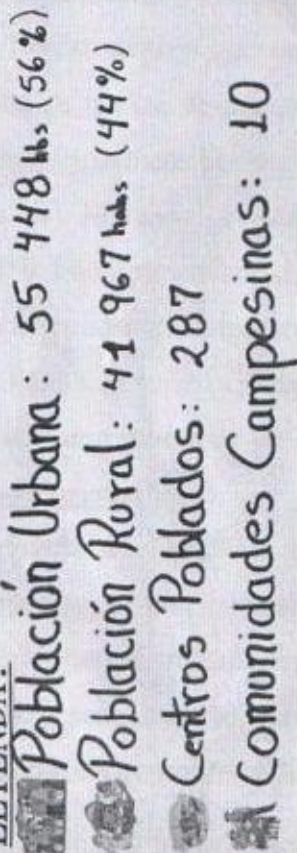 LEYENDA:
Población Urbana: 55 448 hbs (56%)
Población Rural: 41 967 habs (44%)
Centros Poblados: 287
Comunidades Campesinas: 10